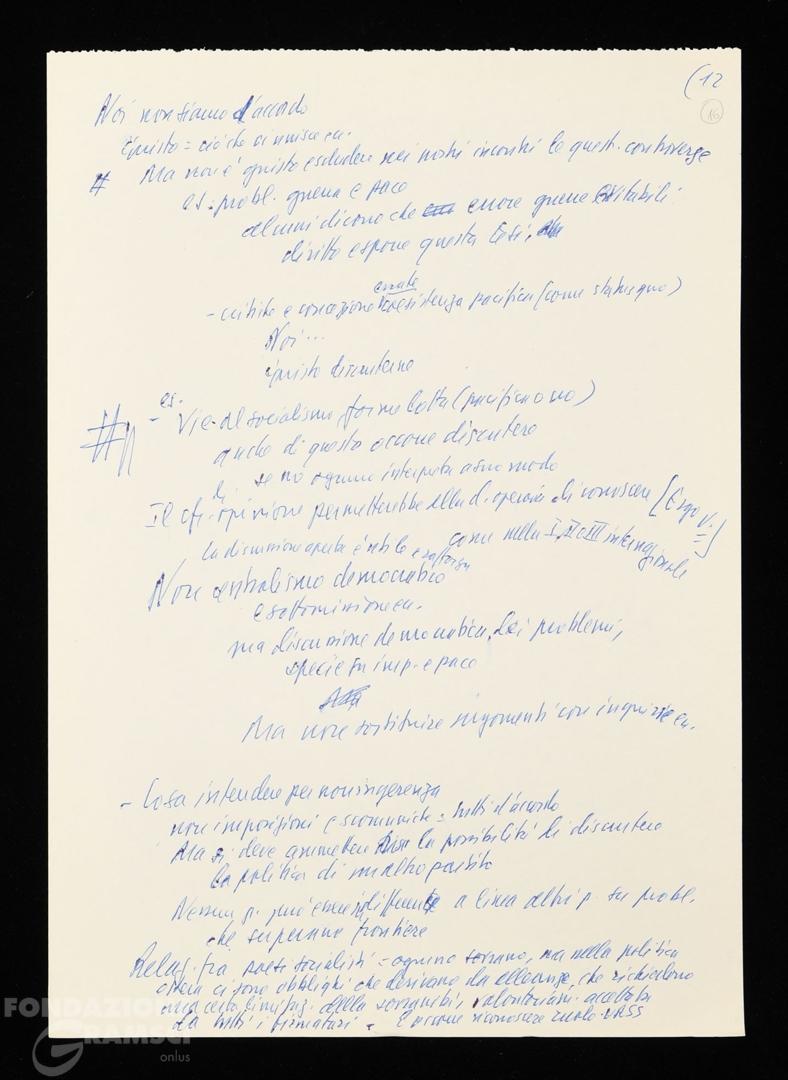 (12
16
Noi non siamo d'accordo
È giusto = ciò che ci unisce ecc.
# Ma non è giusto escludere nei nostri incontri le quest. controverse
es. probl. guerra e pace
alcuni dicono che ancora guerre evitabili
diritto esporre questa tesi,
errata
- critiche e concezione coesistenza pacifica (come status quo)
Noi...
giusto discuterne
es.
# - Vie al socialismo forme lotta (pacifica o no)
anche di questo occorre discutere
se no ognuno interpreta a suo modo
di
Il cfr. opinione permetterebbe alla cl. operaia di conoscere
La discussione aperta è utile come nella I, II e III internazionale
Non centralismo democratico
e sottomissione ecc.
ma discussione democratica dei problemi,
specie su imp. e pace
Ma non sostituire argomenti con ingiurie ecc.
- Cosa intendere per non ingerenza
non imposizioni e scomuniche = tutti d'accordo
Ma si deve ammettere la possibilità di discutere
la politica di un altro partito
Nessun p. può essere indifferente a linea altri p. su probl.
che superano frontiere
Relaz. fra paesi socialisti = ognuno sovrano, ma nella politica
estera ci sono obblighi che derivano da alleanze, che richiedono
una certa limitaz. della sovranità, volontariam. accettata
da tutti i firmatari = Bisogna riconoscere ruolo URSS
FONDAZIONE
GRAMSCI
onlus